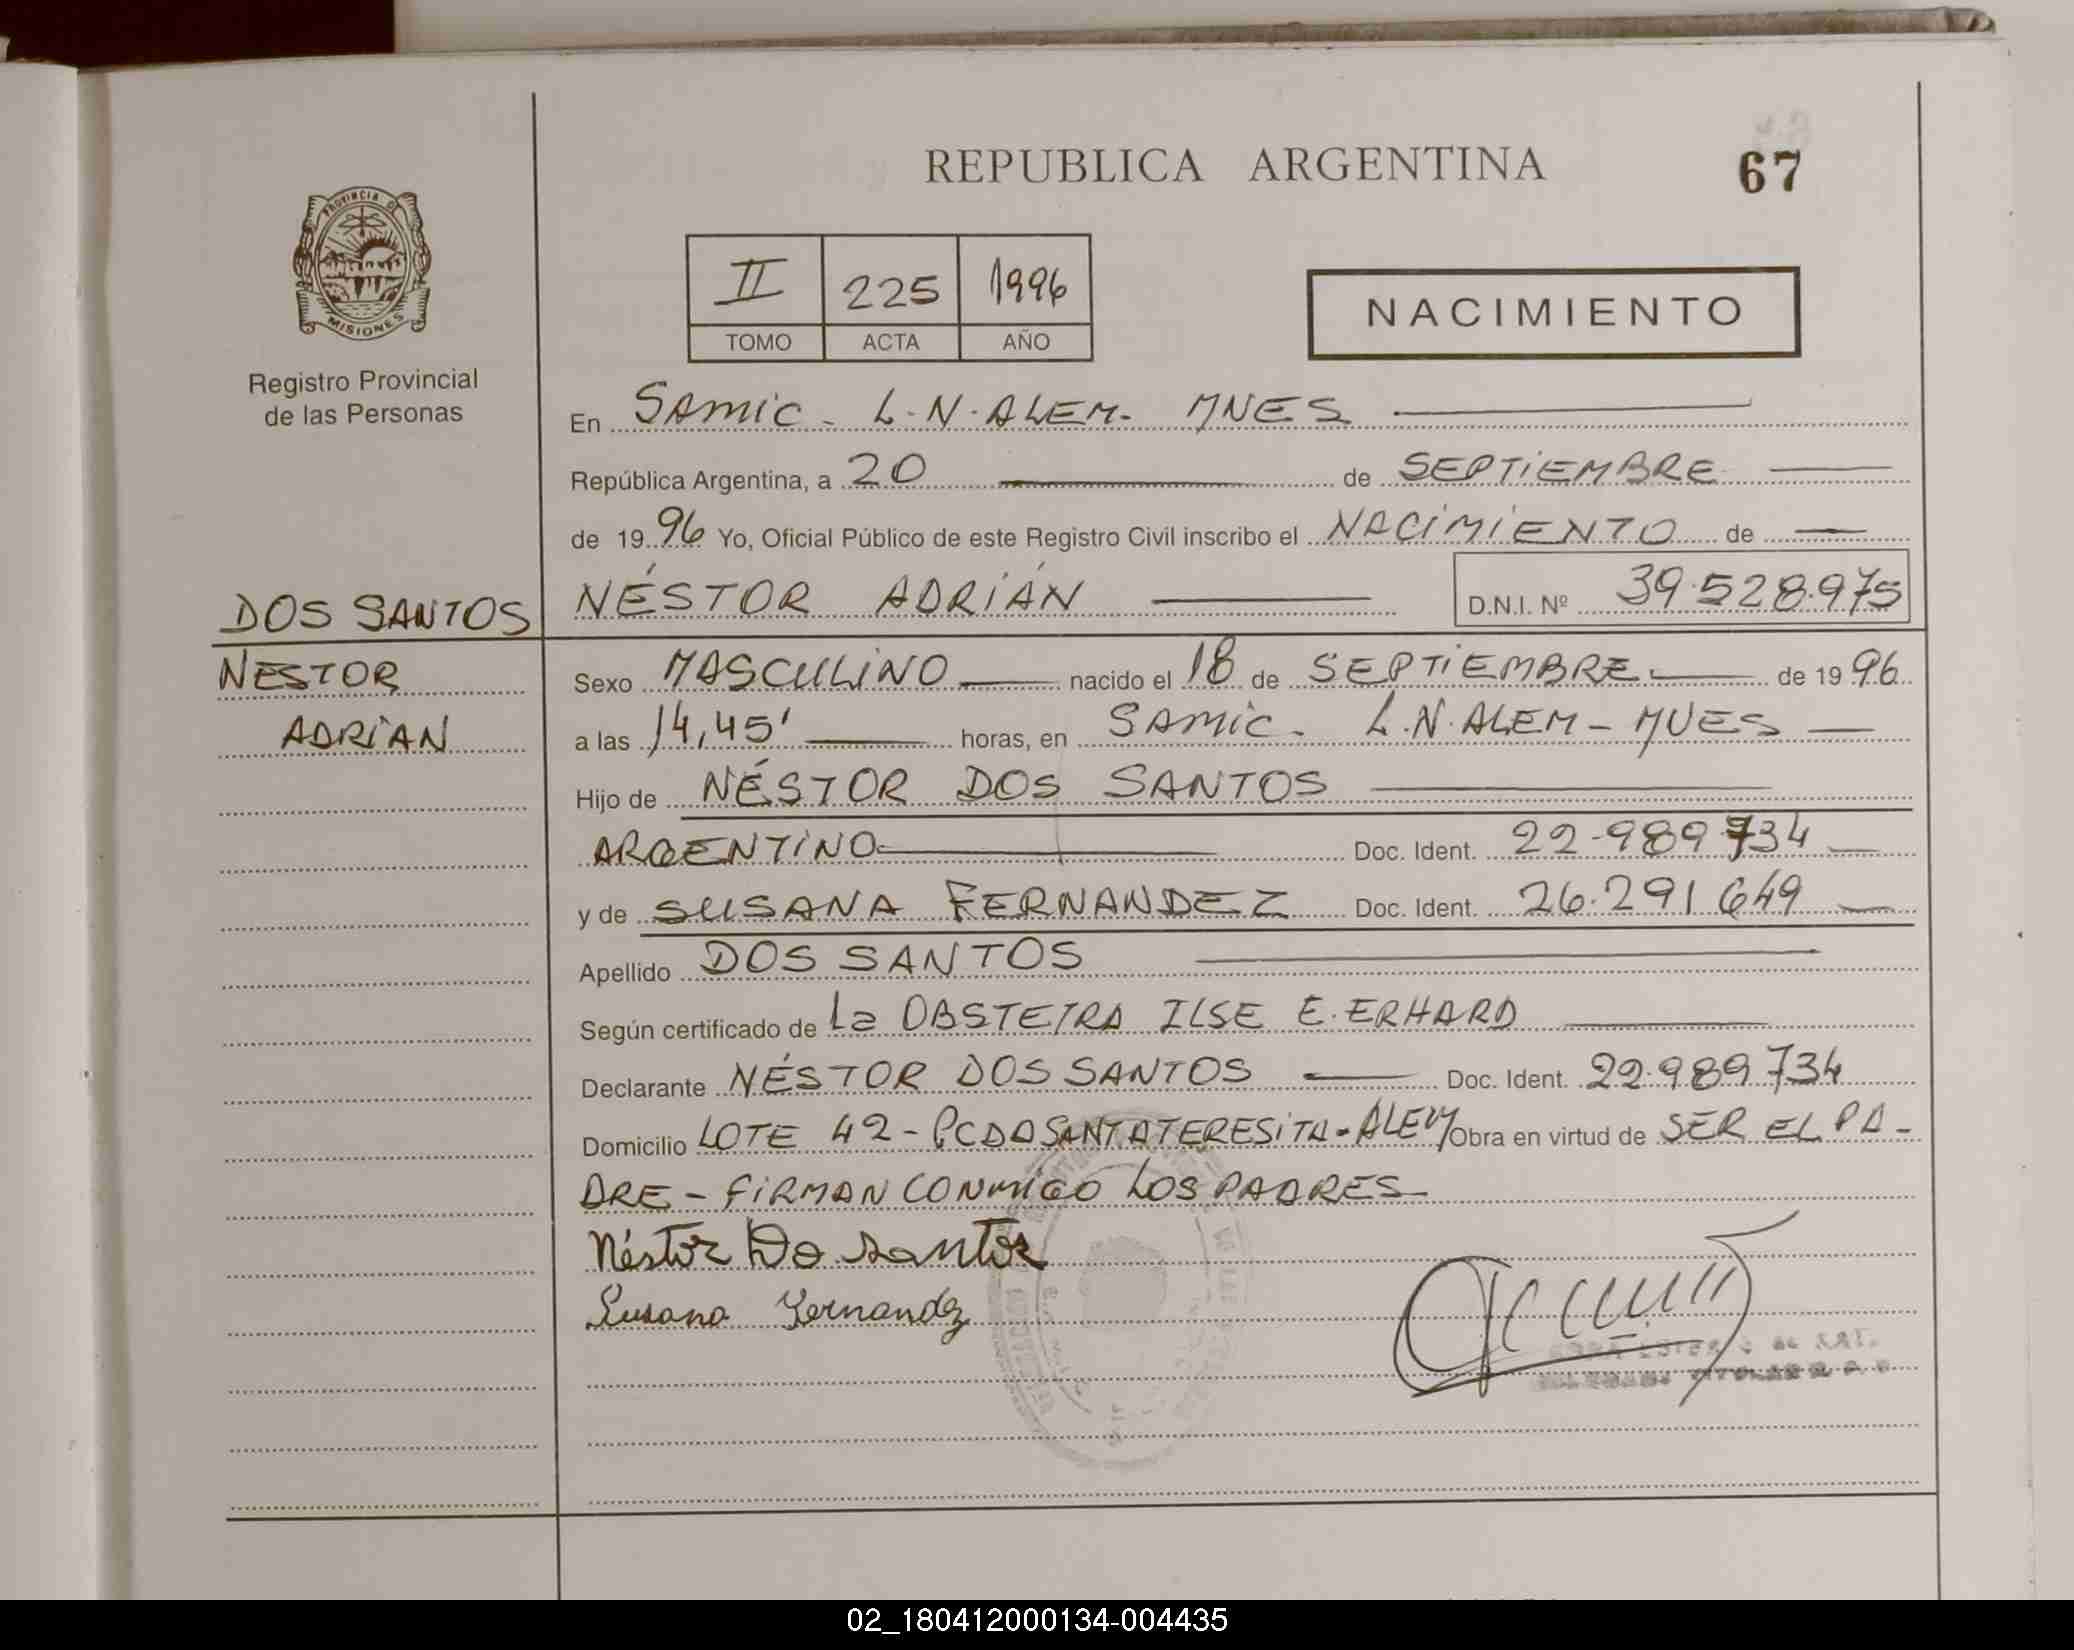 REPUBLICA ARGENTINA
67
PROVINCIA DE
MISIONES
Registro Provincial
de las Personas
II 225 1996
TOMO ACTA AÑO
NACIMIENTO
En SAMIC - L.N. ALEM - MNES
República Argentina, a 20 de SEPTIEMBRE
de 1996 Yo, Oficial Público de este Registro Civil inscribo el NACIMIENTO de
DOS SANTOS NÉSTOR ADRIÁN D.N.I. Nº 39.528.975
NESTOR Sexo MASCULINO nacido el 18 de SEPTIEMBRE de 1996
ADRIAN a las 14,45' horas, en SAMIC - L.N. ALEM - MNES
Hijo de NÉSTOR DOS SANTOS
ARGENTINO Doc. Ident. 22.989.734
y de SUSANA FERNANDEZ Doc. Ident. 26.291.649
Apellido DOS SANTOS
Según certificado de La OBSTETRA ILSE E. ERHARD
Declarante NÉSTOR DOS SANTOS Doc. Ident. 22.989.734
Domicilio LOTE 42 - PCDA SANTA TERESITA - ALEM Obra en virtud de SER EL PA-
DRE - FIRMAN CONMIGO LOS PADRES
Néstor Do santos
Susana Fernandez
02_180412000134-004435